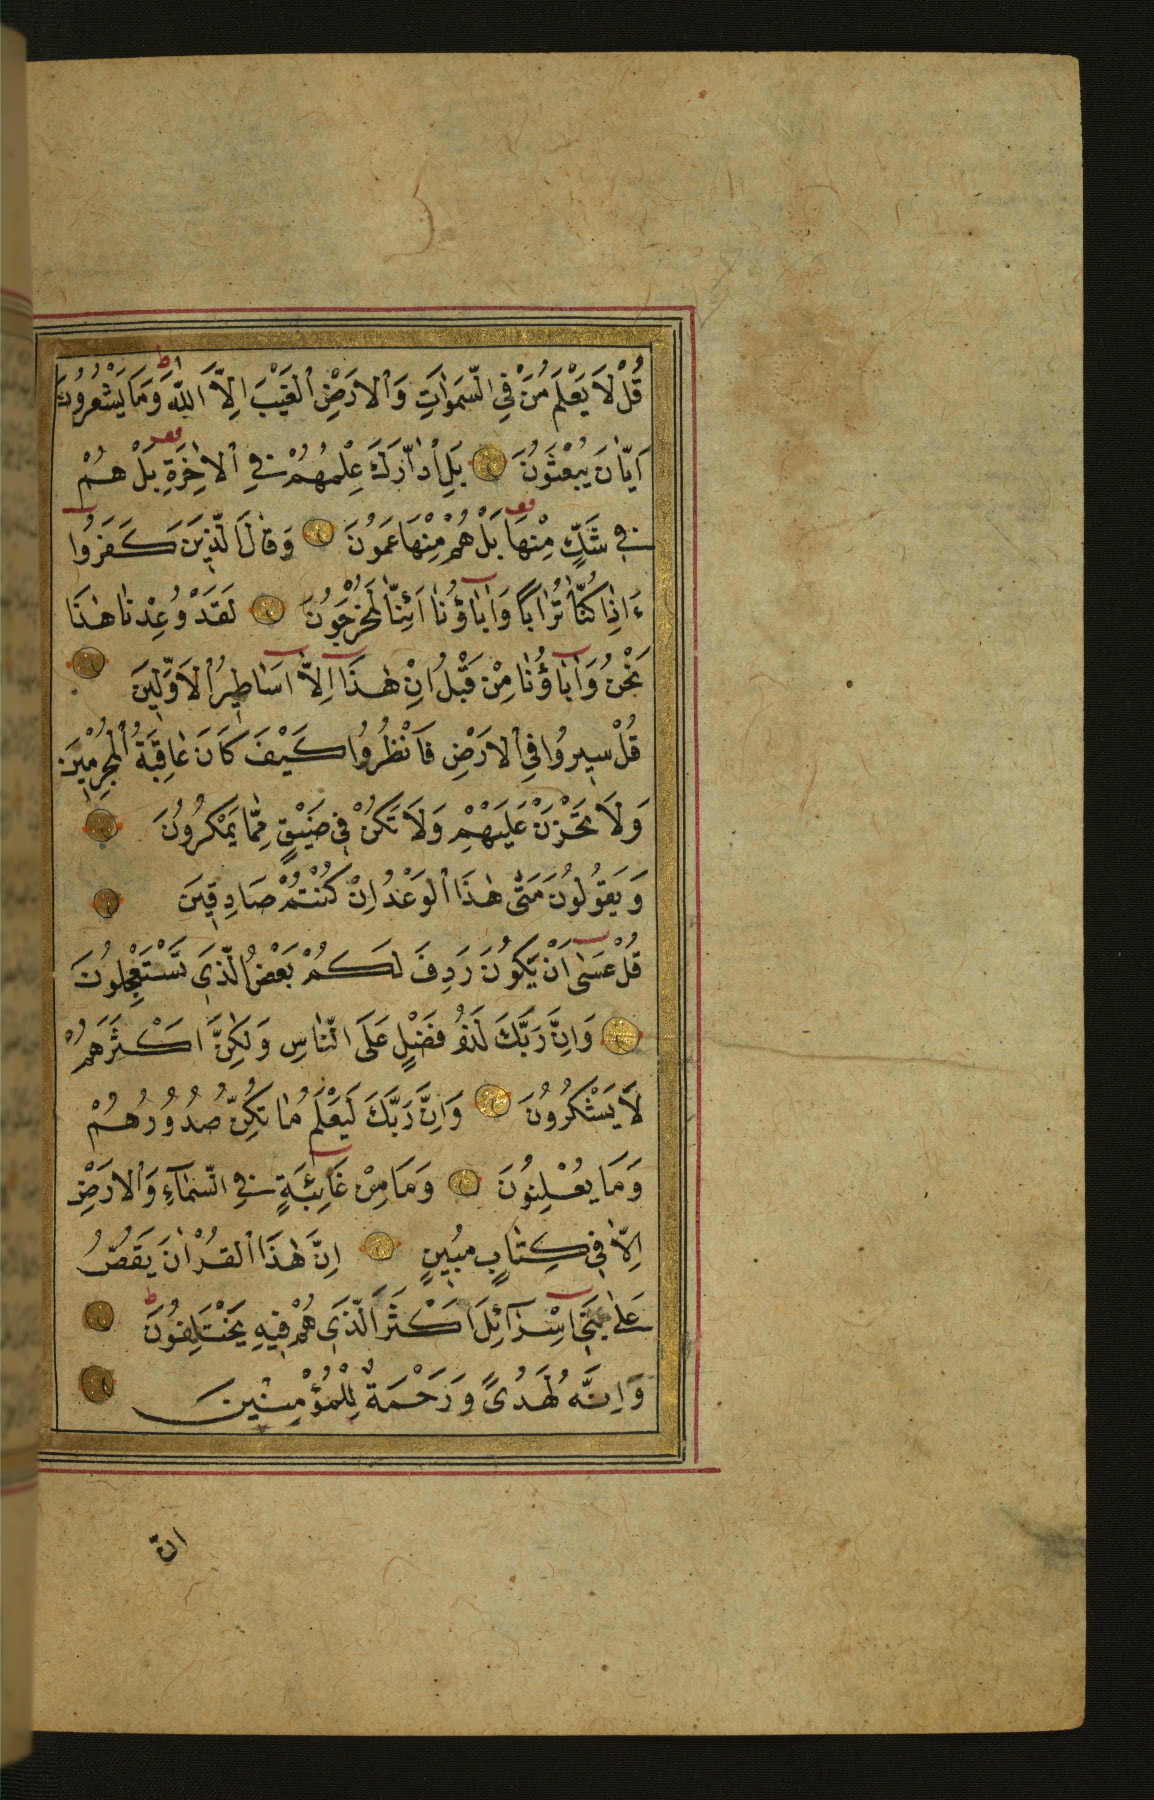 قُلْ لَا يَعْلَمُ مَنْ فِي السَّمٰوَاتِ وَالْاَرْضِ الْغَيْبَ اِلَّا اللّٰهُ وَمَا يَشْعُرُونَ
اَيَّانَ يُبْعَثُونَ بَلِ ادَّارَكَ عِلْمُهُمْ فِي الْاٰخِرَةِ بَلْ هُمْ
فِي شَكٍّ مِنْهَا بَلْ هُمْ مِنْهَا عَمُونَ وَقَالَ الَّذِينَ كَفَرُوا
ءَاِذَا كُنَّا تُرَابًا وَاٰبَاؤُنَا اَئِنَّا لَمُخْرَجُونَ لَقَدْ وُعِدْنَا هٰذَا
نَحْنُ وَاٰبَاؤُنَا مِنْ قَبْلُ اِنْ هٰذَا اِلَّا اَسَاطِيرُ الْاَوَّلِينَ
قُلْ سِيرُوا فِي الْاَرْضِ فَانْظُرُوا كَيْفَ كَانَ عَاقِبَةُ الْمُجْرِمِينَ
وَلَا تَحْزَنْ عَلَيْهِمْ وَلَا تَكُنْ فِي ضَيْقٍ مِمَّا يَمْكُرُونَ
وَيَقُولُونَ مَتٰى هٰذَا الْوَعْدُ اِنْ كُنْتُمْ صَادِقِينَ
قُلْ عَسٰى اَنْ يَكُونَ رَدِفَ لَكُمْ بَعْضُ الَّذِي تَسْتَعْجِلُونَ
وَاِنَّ رَبَّكَ لَذُو فَضْلٍ عَلَى النَّاسِ وَلٰكِنَّ اَكْثَرَهُمْ
لَا يَشْكُرُونَ وَاِنَّ رَبَّكَ لَيَعْلَمُ مَا تُكِنُّ صُدُورُهُمْ
وَمَا يُعْلِنُونَ وَمَا مِنْ غَائِبَةٍ فِي السَّمَآءِ وَالْاَرْضِ
اِلَّا فِي كِتَابٍ مُبِينٍ اِنَّ هٰذَا الْقُرْاٰنَ يَقُصُّ
عَلٰى بَنِي اِسْرَآئِلَ اَكْثَرَ الَّذِي هُمْ فِيهِ يَخْتَلِفُونَ
وَاِنَّهُ لَهُدًى وَرَحْمَةٌ لِلْمُؤْمِنِينَ
انّ